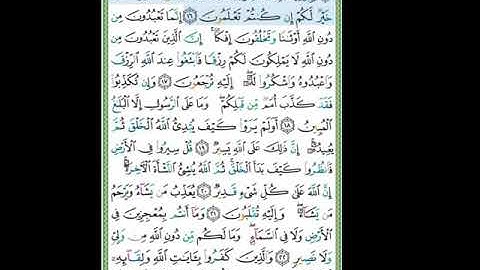 خَيْرٌ لَّكُمْ إِن كُنتُمْ تَعْلَمُونَ ﴿١٦﴾ إِنَّمَا تَعْبُدُونَ مِن
دُونِ اللَّهِ أَوْثَانًا وَتَخْلُقُونَ إِفْكًا ۚ إِنَّ الَّذِينَ تَعْبُدُونَ مِن
دُونِ اللَّهِ لَا يَمْلِكُونَ لَكُمْ رِزْقًا فَابْتَغُوا عِندَ اللَّهِ الرِّزْقَ
وَاعْبُدُوهُ وَاشْكُرُوا لَهُ ۖ إِلَيْهِ تُرْجَعُونَ ﴿١٧﴾ وَإِن تُكَذِّبُوا
فَقَدْ كَذَّبَ أُمَمٌ مِّن قَبْلِكُمْ ۖ وَمَا عَلَى الرَّسُولِ إِلَّا الْبَلَاغُ
الْمُبِينُ ﴿١٨﴾ أَوَلَمْ يَرَوْا كَيْفَ يُبْدِئُ اللَّهُ الْخَلْقَ ثُمَّ
يُعِيدُهُ ۚ إِنَّ ذَٰلِكَ عَلَى اللَّهِ يَسِيرٌ ﴿١٩﴾ قُلْ سِيرُوا فِي الْأَرْضِ
فَانظُرُوا كَيْفَ بَدَأَ الْخَلْقَ ۚ ثُمَّ اللَّهُ يُنشِئُ النَّشْأَةَ الْآخِرَةَ ۚ
إِنَّ اللَّهَ عَلَىٰ كُلِّ شَيْءٍ قَدِيرٌ ﴿٢٠﴾ يُعَذِّبُ مَن يَشَاءُ وَيَرْحَمُ
مَن يَشَاءُ ۖ وَإِلَيْهِ تُقْلَبُونَ ﴿٢١﴾ وَمَا أَنتُم بِمُعْجِزِينَ فِي
الْأَرْضِ وَلَا فِي السَّمَاءِ ۖ وَمَا لَكُم مِّن دُونِ اللَّهِ مِن وَلِيٍّ
وَلَا نَصِيرٍ ﴿٢٢﴾ وَالَّذِينَ كَفَرُوا بِآيَاتِ اللَّهِ وَلِقَائِهِ